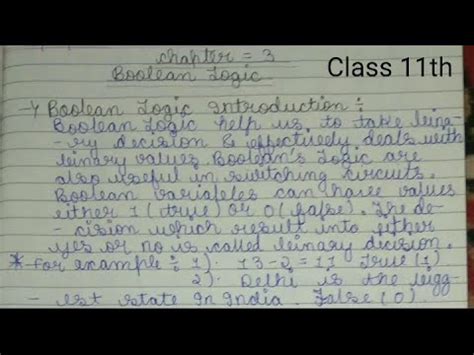 chapter = 3
Class 11th
Boolean Logic
→ Boolean Logic Introduction :-
Boolean Logic help us to take bina-
-ry decision & effectively deals with
binary values. Boolean's Logic are
also useful in switching circuits.
Boolean variables can have values
either 1 (true) or 0 (false). The de-
-cision which result into either
yes or no is called binary decision.
* for example :- 1). 13-2=11 True (1)
2). Delhi is the bigg-
-est state In India. False (0).